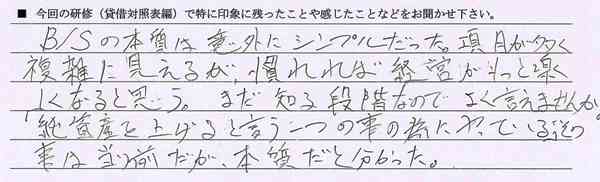 ■ 今回の研修（貸借対照表編）で特に印象に残ったことや感じたことなどをお聞かせ下さい。
B/Sの本質は意外にシンプルだった。項目が多く
複雑に見えるが、慣れれば経営がもっと楽
しくなると思う。まだ知る段階なのでよく言えませんが
「純資産を上げると言う一つの事の為にやっている」その
事は当り前だが、本質だと分かった。